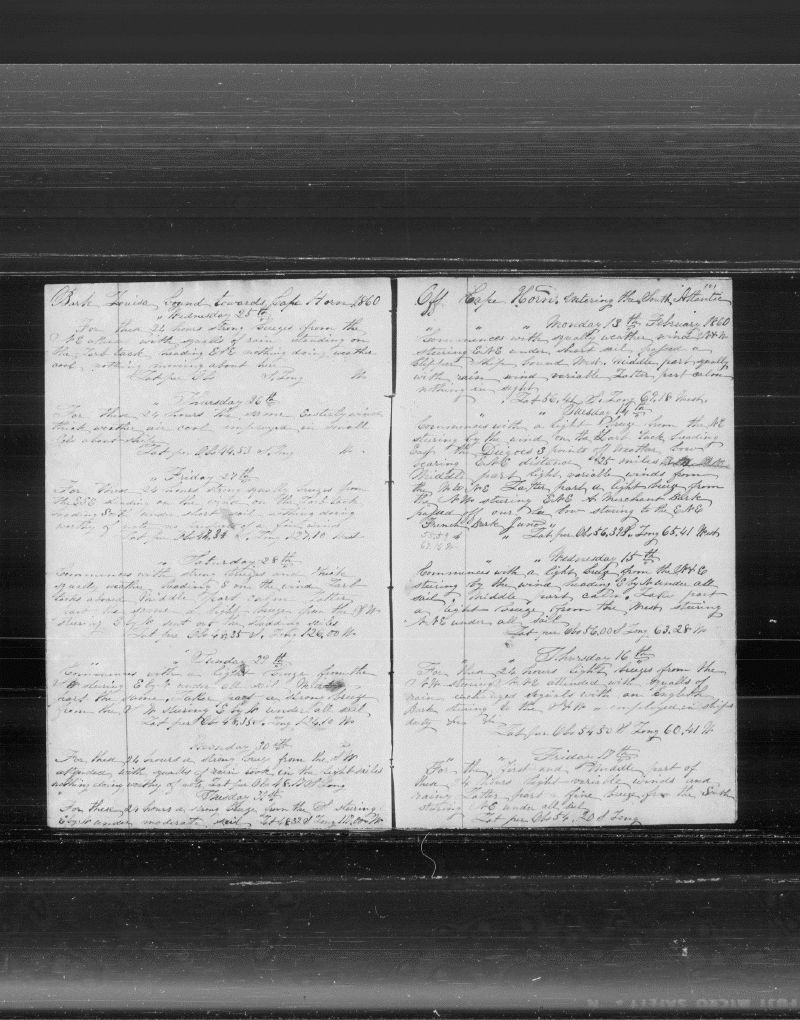 Bark Louisa bound towards Cape Horn 1860
" Wednesday 25th
For thea 24 hours strong breezes from the
NE attean with squalls of rain standing on
the Port tack heading ESE nothing doing weather
cool nothing running about here
Lat per Obs S, Long W
" Thursday 26th
For thea 24 hours the same Easterly wind
thick weather air cool employed in small
jobs about ship
Lat per Obs 44.53 S, Long W
" Friday 27th
For thea 24 hours strong squally breezes from
the ESE laying by the wind on the Port tack
heading South under short sail nothing doing
worthy of note
Lat per Obs 48.33 S, Long 127.10 West
" Saturday 28th
Commences with strong breezes and thick
squally weather heading S on the wind Port
tacks aboard Middle part calm Latter
part the same a light breeze from the NW
steering E by S sent out the studding sails
Lat per Obs 48.35 S, Long 126.00 W
" Sunday 29th
Commences with a light breeze from the
NW steering E by S under all sail Middle
part the same, Later part a strong breeze
from the NW steering E by S under all sail
Lat per Obs 48.33 S, Long 124.10 W
Monday 30th
For thea 24 hours a strong breeze from the NW
attended with squalls of rain took in the light sailes
nothing doing worthy of note Lat per Obs 48. S Long
" Tuesday 31th
For thea 24 hours a strong breeze from the S stering
E by S under moderate sail Lat 48.52 S Long 116.00 W
Off Cape Horn, entering the South Atlantic
" " Monday 13th February 1860
Commences with squally weather wind
steering ENE under short sail, passed a
Clipper Ship bound West, middle part squally
with rain wind variable Latter part calm
nothing in sight
Lat 56.41 S, Long 69.18 West
" Tuesday 14th
Commences with a light Breeze from the NE
steering by the wind on the Larb tack heading
East the Deigoes 3 points off weather bow
bearing ENE distance 25 miles
Middle part light, variable winds from
the N to NE Latter part a light breeze from
the NNW stering ENE A Merchant Bark
passed off our Lee bow stering to the ENE
French Bark Junon
" Lat per Obs 56.39 S Long 65.41 West
" " Wednesday 15th
Commences with a light breeze from the
steering by the wind heading E by S under all
sail, Middle part calm, Later part
a light breeze from the West stering
NNE under all sail
Lat per Obs 56.00 S Long 63.28 W
" Thursday 16th
For thea 24 hours light breezes from the
NW stering NNE attended with squalls of
rain exchanged signals with an English
Bark stering to the employed in ships
duty
Lat per Obs 54.50 S Long 60.41 W
" Friday 17th
For the first and Middle part of
thea 24 hours light variable winds and
rainy Latter part a fine breeze from the South
stering NE under all sail
Lat per Obs 54.20 S Long